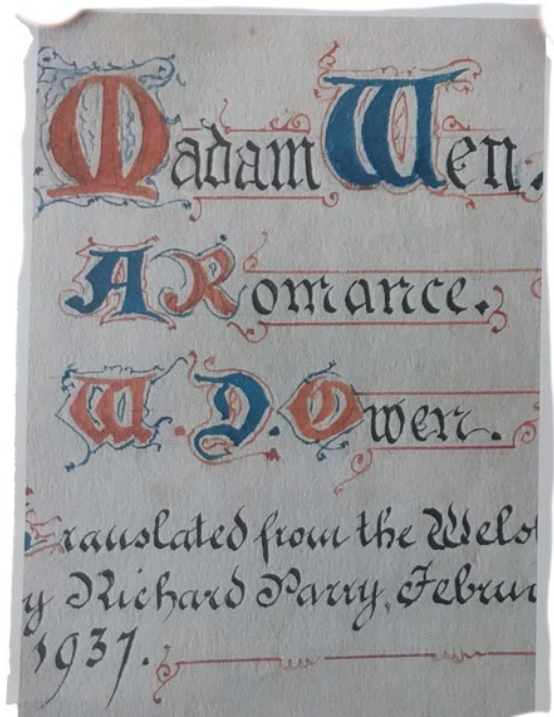 Madam Wen.
A Romance.
W. D. Owen.
Translated from the Wels
y Richard Parry, Februa
1937.